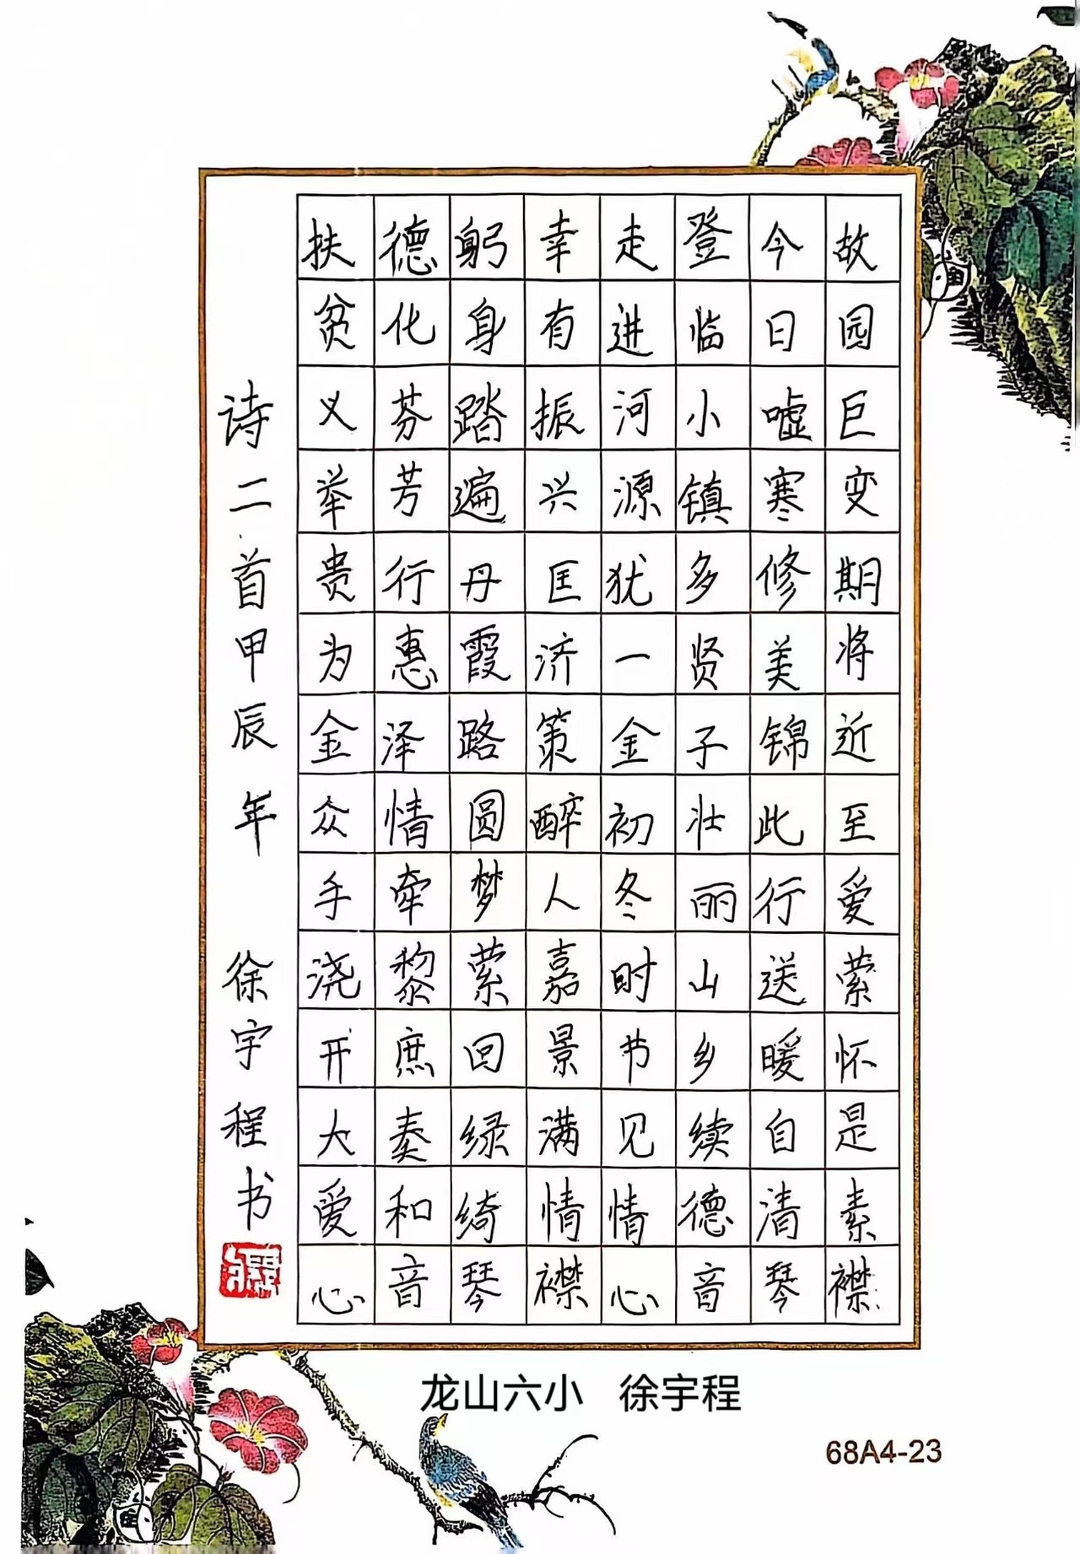 故园巨变期将近至爱萦怀是素襟
今日嘘寒修美锦此行送暖自清琴
登临小镇多贤子壮丽山乡续德音
走进河源犹一金初冬时节见情心
幸有振兴匡济策醉人嘉景满情襟
躬身踏遍丹霞路圆梦萦回绿绮琴
德化芬芳行惠泽情牵黎庶奏和音
扶贫义举贵为金众手浇开大爱心
诗二首甲辰年 徐宇程书
龙山六小 徐宇程
68A4-23